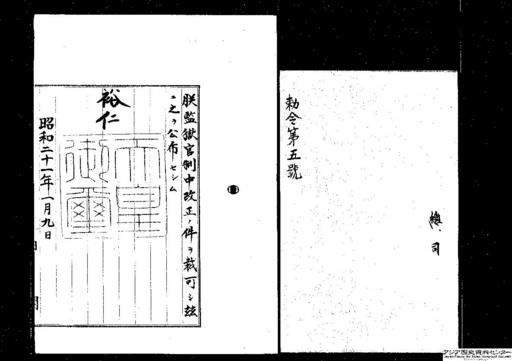 勅令第五號
總、司
朕監獄官制中改正ノ件ヲ裁可シ茲
ニ之ヲ公布セシム
裕仁
天皇御璽
昭和二十一年一月九日
アジア歴史資料センター